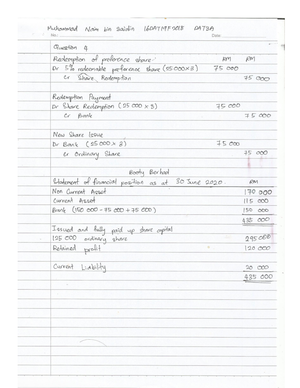 Muhammad Naim bin Saidin 16DAT19F2018 DAT3A
No. Date
Question 4
Redemption of preference share RM RM
Dr 5% redeemable preference share (25 000 x 3) 75 000
Cr Share Redemption 75 000
Redemption Payment
Dr Share Redemption (25 000 x 3) 75 000
Cr Bank 75 000
New Share Issue
Dr Bank (25 000 x 3) 75 000
Cr Ordinary Share 75 000
Booty Berhad
Statement of financial position as at 30 June 2020 RM
Non Current Asset 170 000
Current Asset 115 000
Bank (150 000 - 75 000 + 75 000) 150 000
435 000
Issued and fully paid up share capital
125 000 ordinary share 295 000
Retained profit 120 000
Current Liability 20 000
435 000